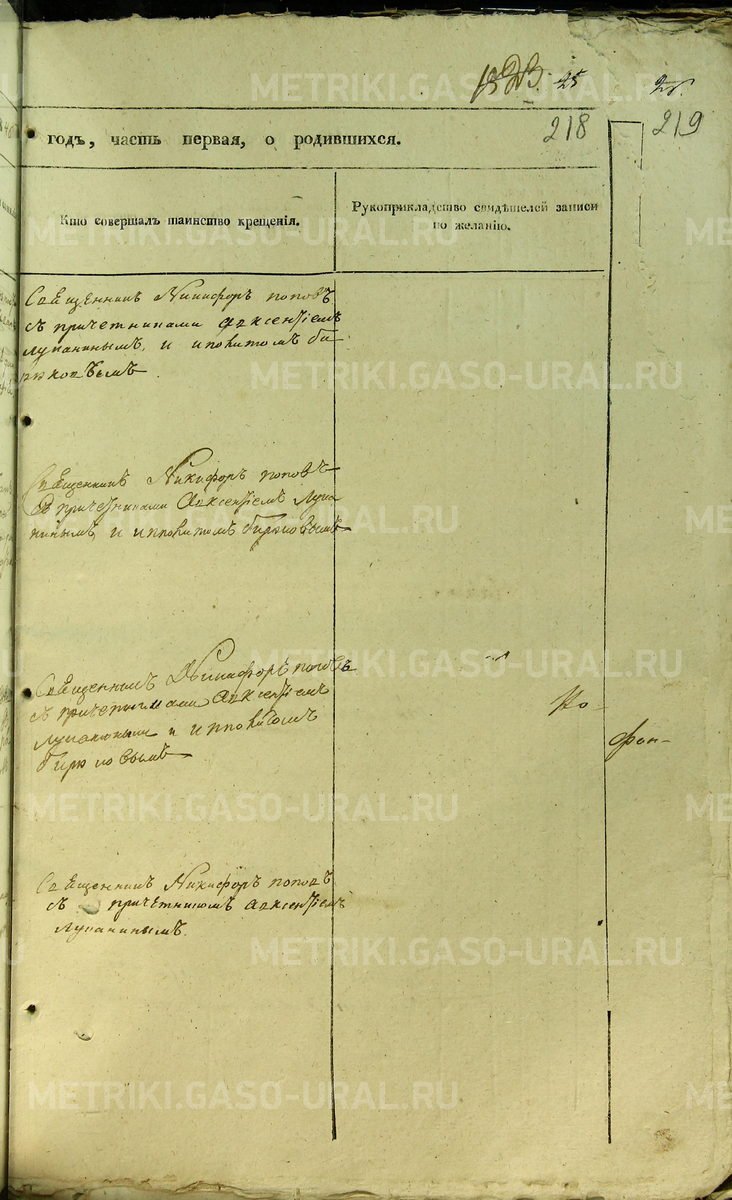 25
218
219
годъ, часть первая, о родившихся.
Кто совершалъ таинство крещенія.
Рукоприкладство свидѣтелей записи
по желанію.
Священникъ Никифоръ поповъ
съ причетниками Авксентіемъ
лупанинымъ, и иполитомъ би-
рюковымъ
Священникъ Никифоръ поповъ
съ причетниками Авксентіемъ Лупа
нинымъ и ипполитомъ бирюковымъ
Священникъ Никифоръ поповъ
съ причетниками Авксентіемъ
Лупанинымъ и ипполитомъ
бирюковымъ
Священникъ Никифоръ поповъ
съ причетникомъ Авксентіемъ
лупанинымъ.
METRIKI.GASO-URAL.RU